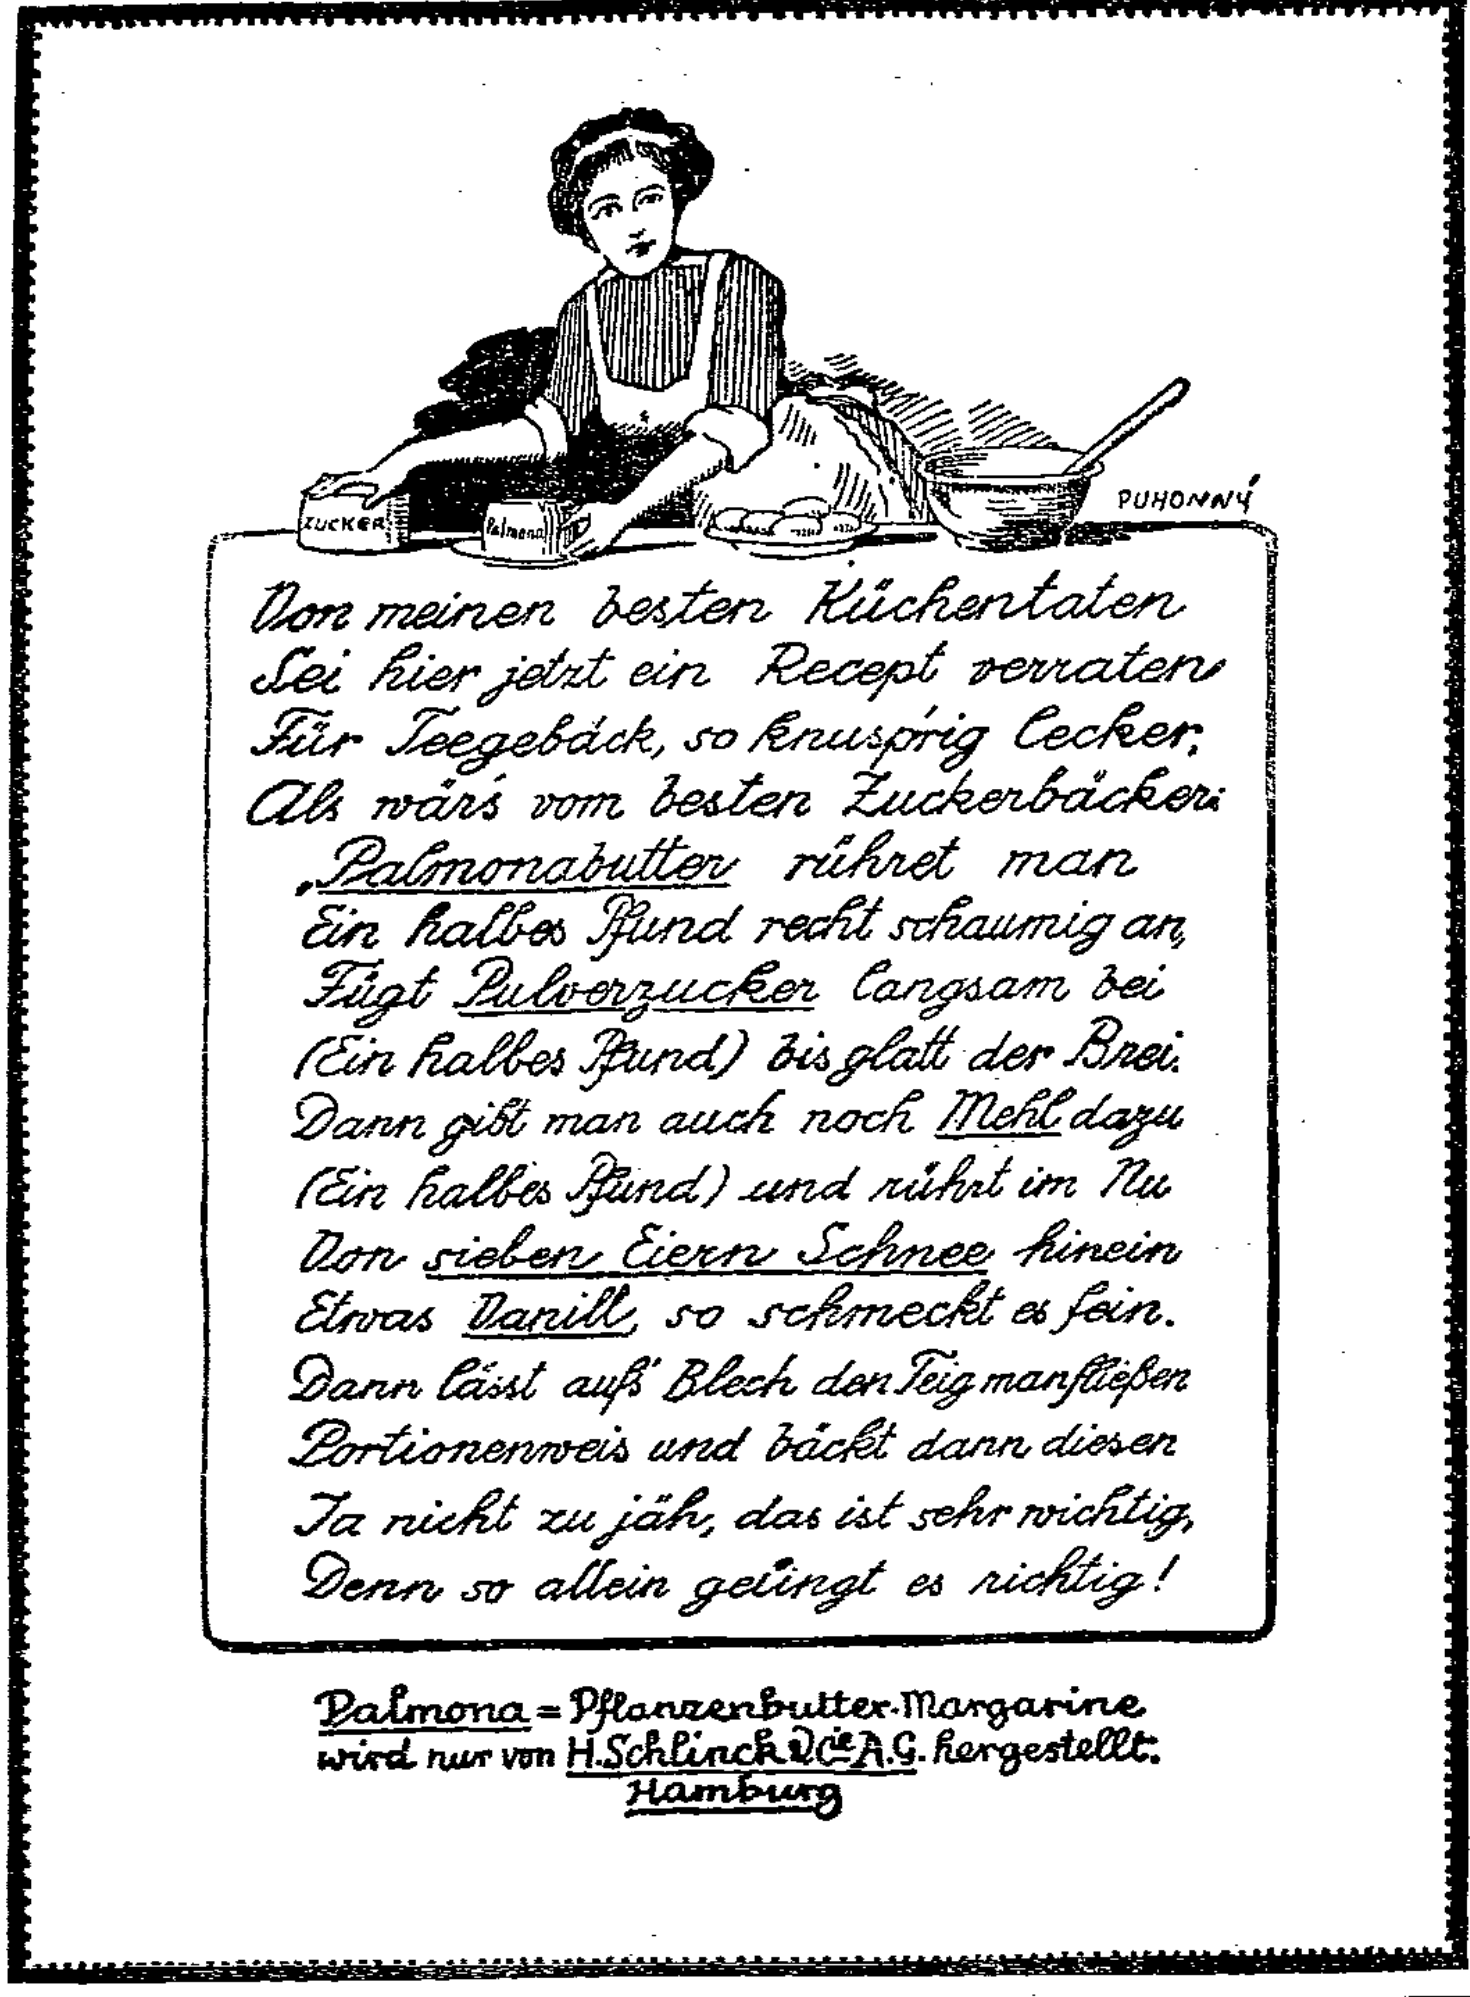 PUHONNÝ
ZUCKER
Palmona
Von meinen besten Küchentaten
Sei hier jetzt ein Recept verraten
Für Teegebäck, so knusp'rig lecker,
Als wär's vom besten Zuckerbäcker:
„Palmonabutter rühret man
Ein halbes Pfund recht schaumig an,
Fügt Pulverzucker langsam bei
(Ein halbes Pfund) bis glatt der Brei.
Dann gibt man auch noch Mehl dazu
(Ein halbes Pfund) und rührt im Nu
Von sieben Eiern Schnee hinein
Etwas Vanill, so schmeckt es fein.
Dann lässt auf's Blech den Teig man fließen
Portionenweis und bäckt dann diesen
Ja nicht zu jäh, das ist sehr wichtig,
Denn so allein gelingt es richtig!
Palmona = Pflanzenbutter-Margarine
wird nur von H. Schlinck & Cie A.G. hergestellt.
Hamburg